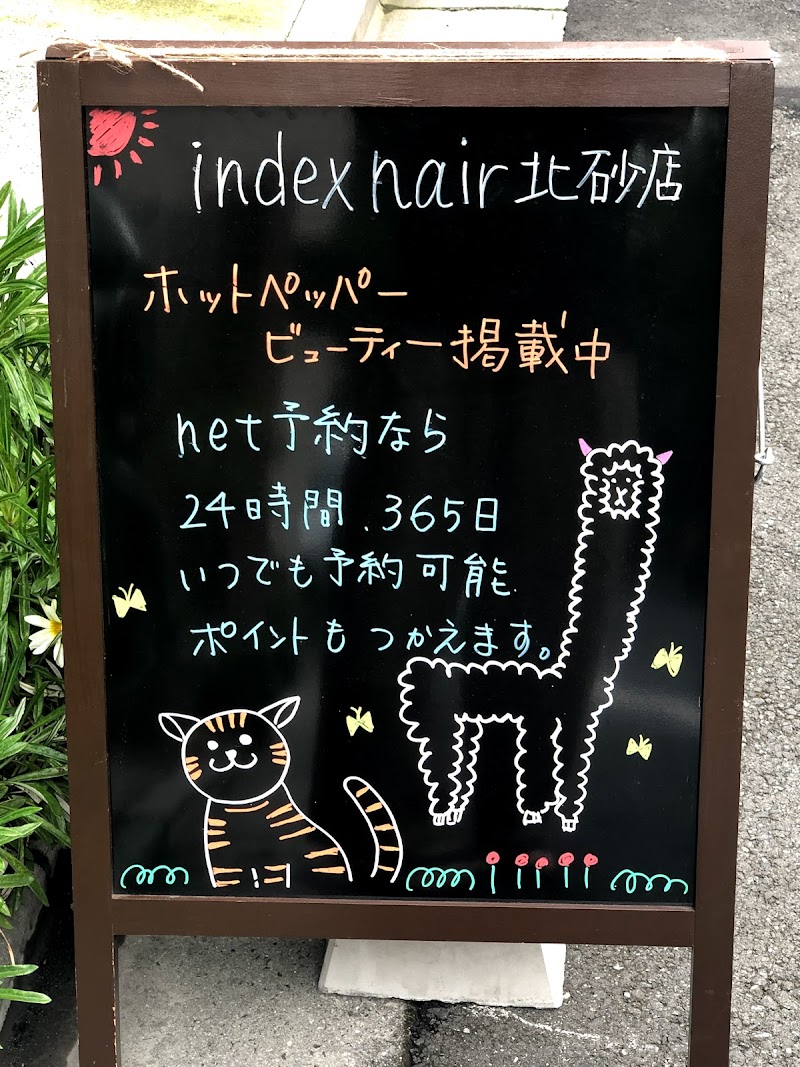 index hair 北砂店
ホットペッパー
ビューティー掲載中
net予約なら
24時間、365日
いつでも予約可能
ポイントもつかえます。